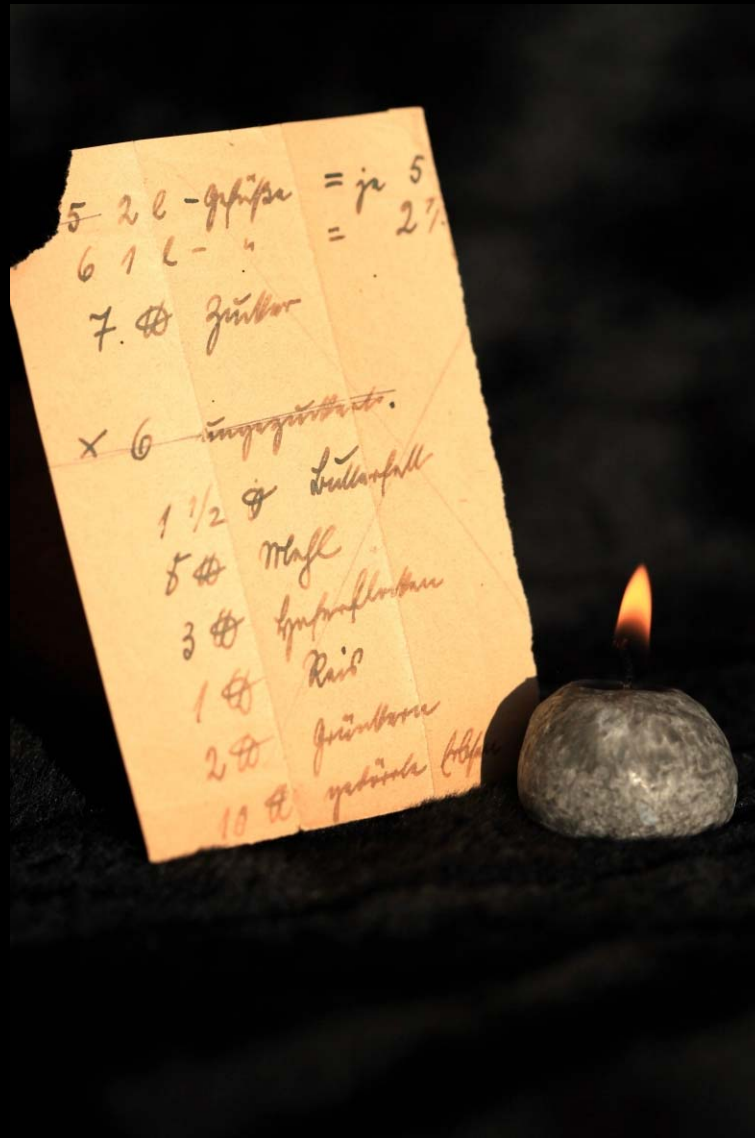 5 2 l - Gefäße = je 5
6 1 l - " = 2 1/
7. ℔ Zucker
× 6 ungezuckert.
1 1/2 ℔ Butterfett
5 ℔ Mehl
3 ℔ Haferflocken
1 ℔ Reis
2 ℔ Grünkern
10 ℔ gedörrte Erbsen